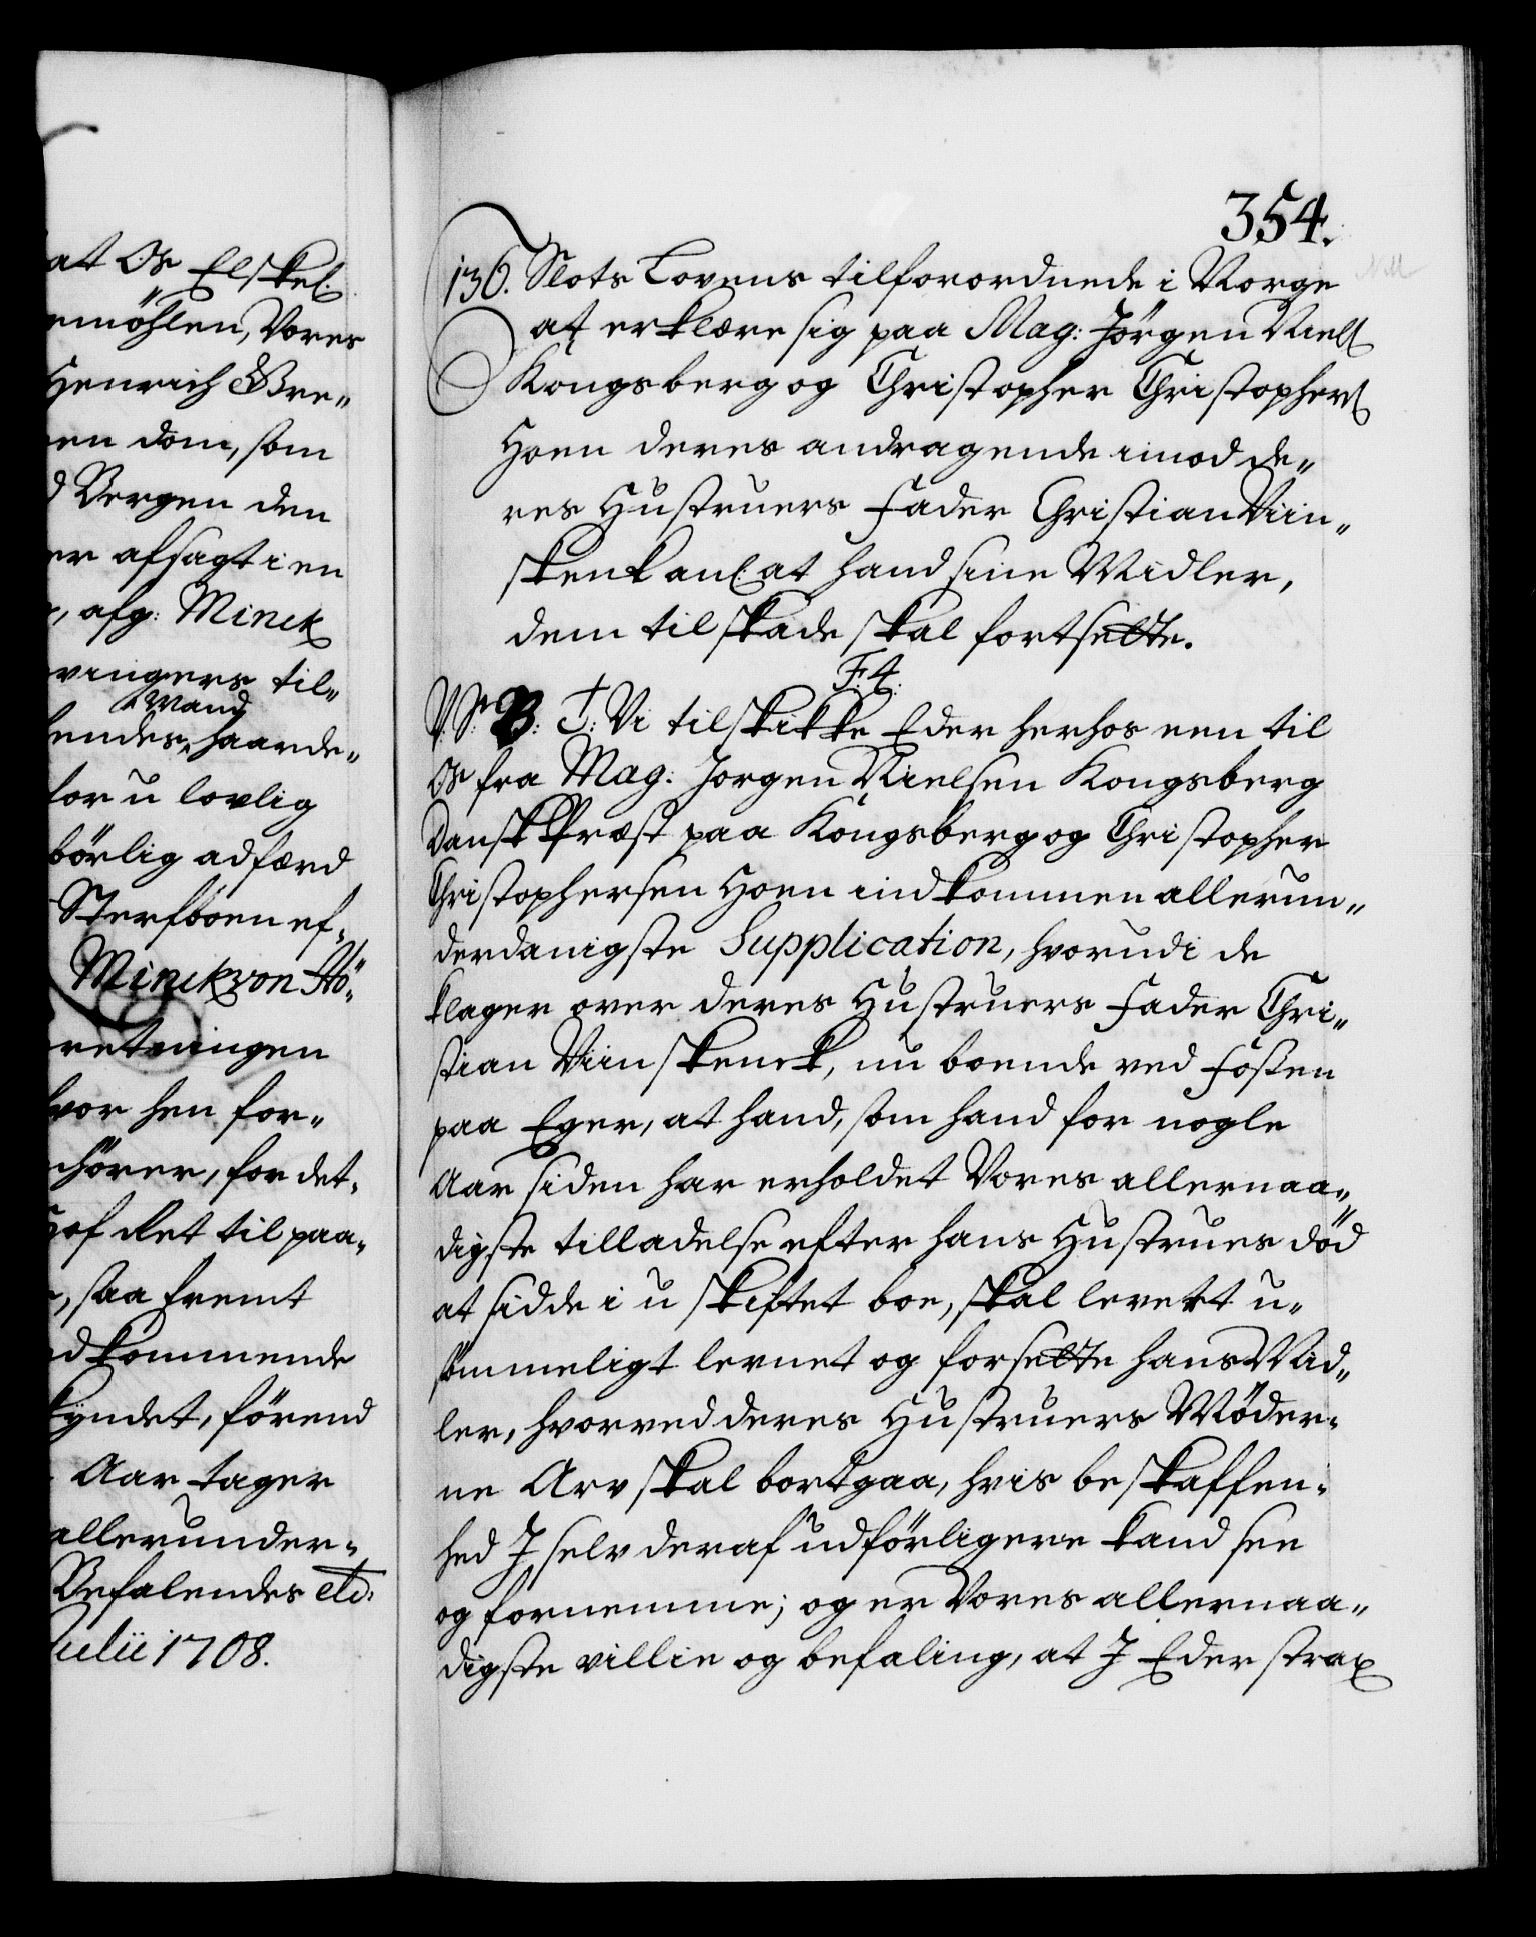 at Os Elskel.
emöhlen, Vores
Henrich Bre„
en dom, som
d Bergen den
er afsagt i en
, afg: Minck
vinger til„
Mand
hendes haarde„
for u lovlig
börlig adfærd
Sterfboen ef„
Minck von Hö„
retningen
hvor hen for„
hörer, for det„
Hof Ret til paa„
, saa fremt
d kommende
kyndet, förend
Aar tager
allerunder„
Befalendes etc:
Julii 1708.
354.
136. Slots Lovens tilforordnede i Norge
at erklære sig paa Mag: Jörgen Niels:
Kongsberg og Christopher Christophers:
Hoen deres andragende imod de„
res Hustruers Fader Christian Viin„
skenk anl: at hand sine Midler,
dem til skade skal fortsette.
F: 4.
V: S: B: T: Vi tilskikke Eder herhos een til
Os fra Mag: Jorgen Nielsen Kongsberg
Dansk Præst paa Kongsberg og Christopher
Christophersen Hoen indkommen allerun„
derdanigste Supplication, hvorudi de
klager over deres Hustruers Fader Chri„
stian Viinskenck, nu boende ved Foßen
paa Eger, at hand, som hand for nogle
Aar siden har erholdet Vores allernaa„
digste tilladelse efter hans Hustrues död
at sidde i u skiftet boe, skal levekt u„
sömmeligt levnet og forsette hans Mid„
ler, hvorved deres Hustruers Möder„
ne Arv skal bortgaa, hvis beskaffen„
hed I selv deraf udförligere kand see
og fornemme; og er Vores allernaa„
digste villie og befaling, at I Eder strax